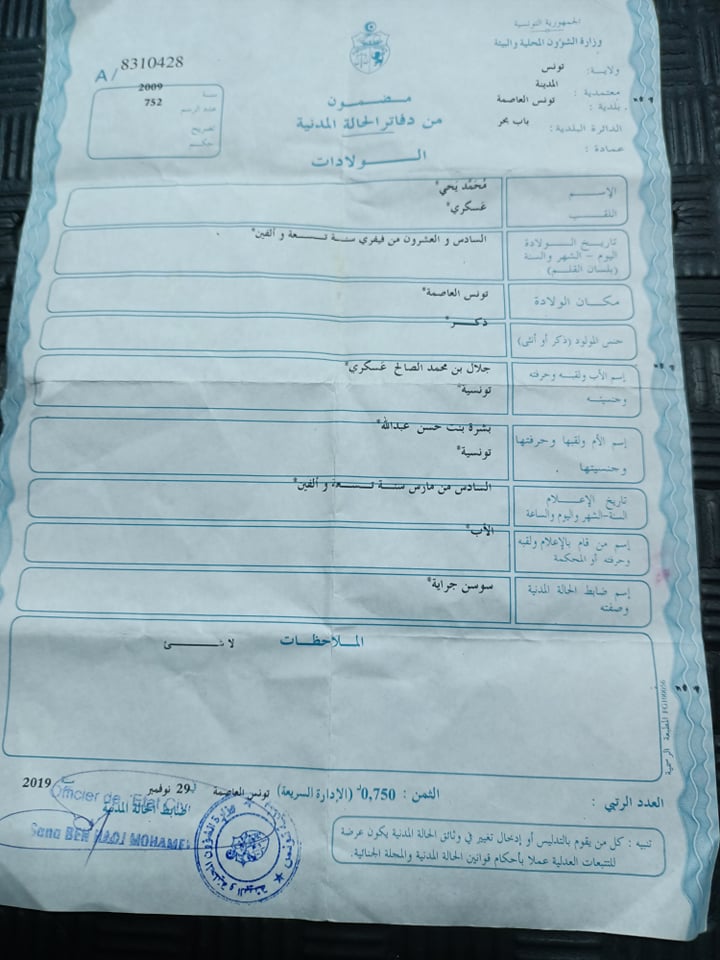 الجمهورية التونسية
وزارة الشؤون المحلية والبيئة
ولاية: تونس
معتمدية: المدينة
بلدية: تونس العاصمة
الدائرة البلدية: باب بحر
عمادة:
A/ 8310428
سنة 2009
عدد الرسم 752
تصريح
حكم
مضمون
من دفاتر الحالة المدنية
الولادات
الإسم مُحَمَّد يَحي*
اللقب عَسكري*
تاريخ الولادة
اليوم - الشهر والسنة
(بلسان القلم)
السادس و العشرون من فيفري سنة تسعة و ألفين*
مكان الولادة تونس العاصمة*
جنس المولود (ذكر أو أنثى) ذكر*
إسم الأب ولقبه وحرفته جلال بن محمد الصالح عَسكري*
وجنسيته تونسية*
إسم الأم ولقبها وحرفتها بشرة بنت حسن عبدالله*
وجنسيتها تونسية*
تاريخ الإعلام السادس من مارس سنة تسعة و ألفين*
السنة-الشهر واليوم والساعة
إسم من قام بالإعلام ولقبه الأب*
وحرفته أو المحكمة
إسم ضابط الحالة المدنية سوسن جراية*
وصفته
الملاحظات لا شئ
المطبعة الرسمية
العدد الرتبي :
الثمن : 0,750د (الإدارة السريعة)
تونس العاصمة 29 نوفمبر 2019
ضابط الحالة المدنية
Officier de l'Etat Civil
Sana BEN HADJ MOHAMED
تنبيه : كل من يقوم بالتدليس أو إدخال تغيير في وثائق الحالة المدنية يكون عرضة
للتتبعات العدلية عملا بأحكام قوانين الحالة المدنية والمجلة الجنائية.